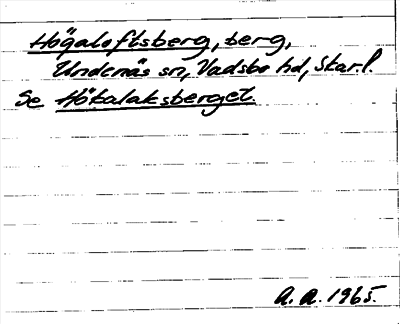 Högaloftsberg, berg,
Undenäs sn, Vadsbo hd, Skar. l.
Se Hökalaksberget.
A. A. 1965.